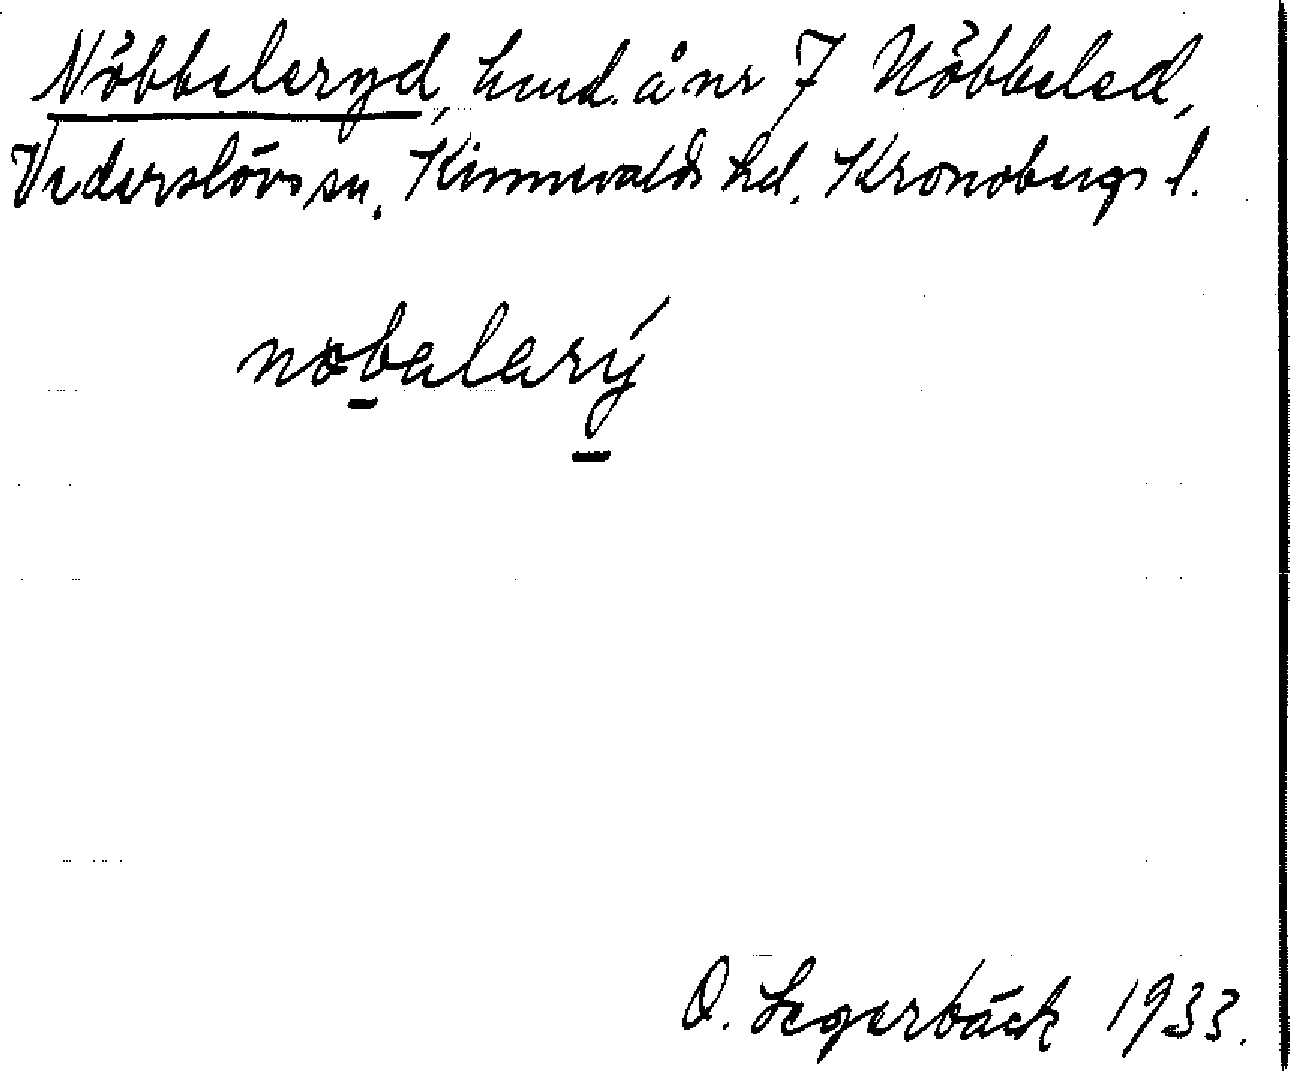 Nöbbeleryd, hmd. å nr 7 Nöbbeled,
Vederslövs sn, Kinnevalds hd. Kronobergs l.
nøbalarý
O. Segerbäck 1933.